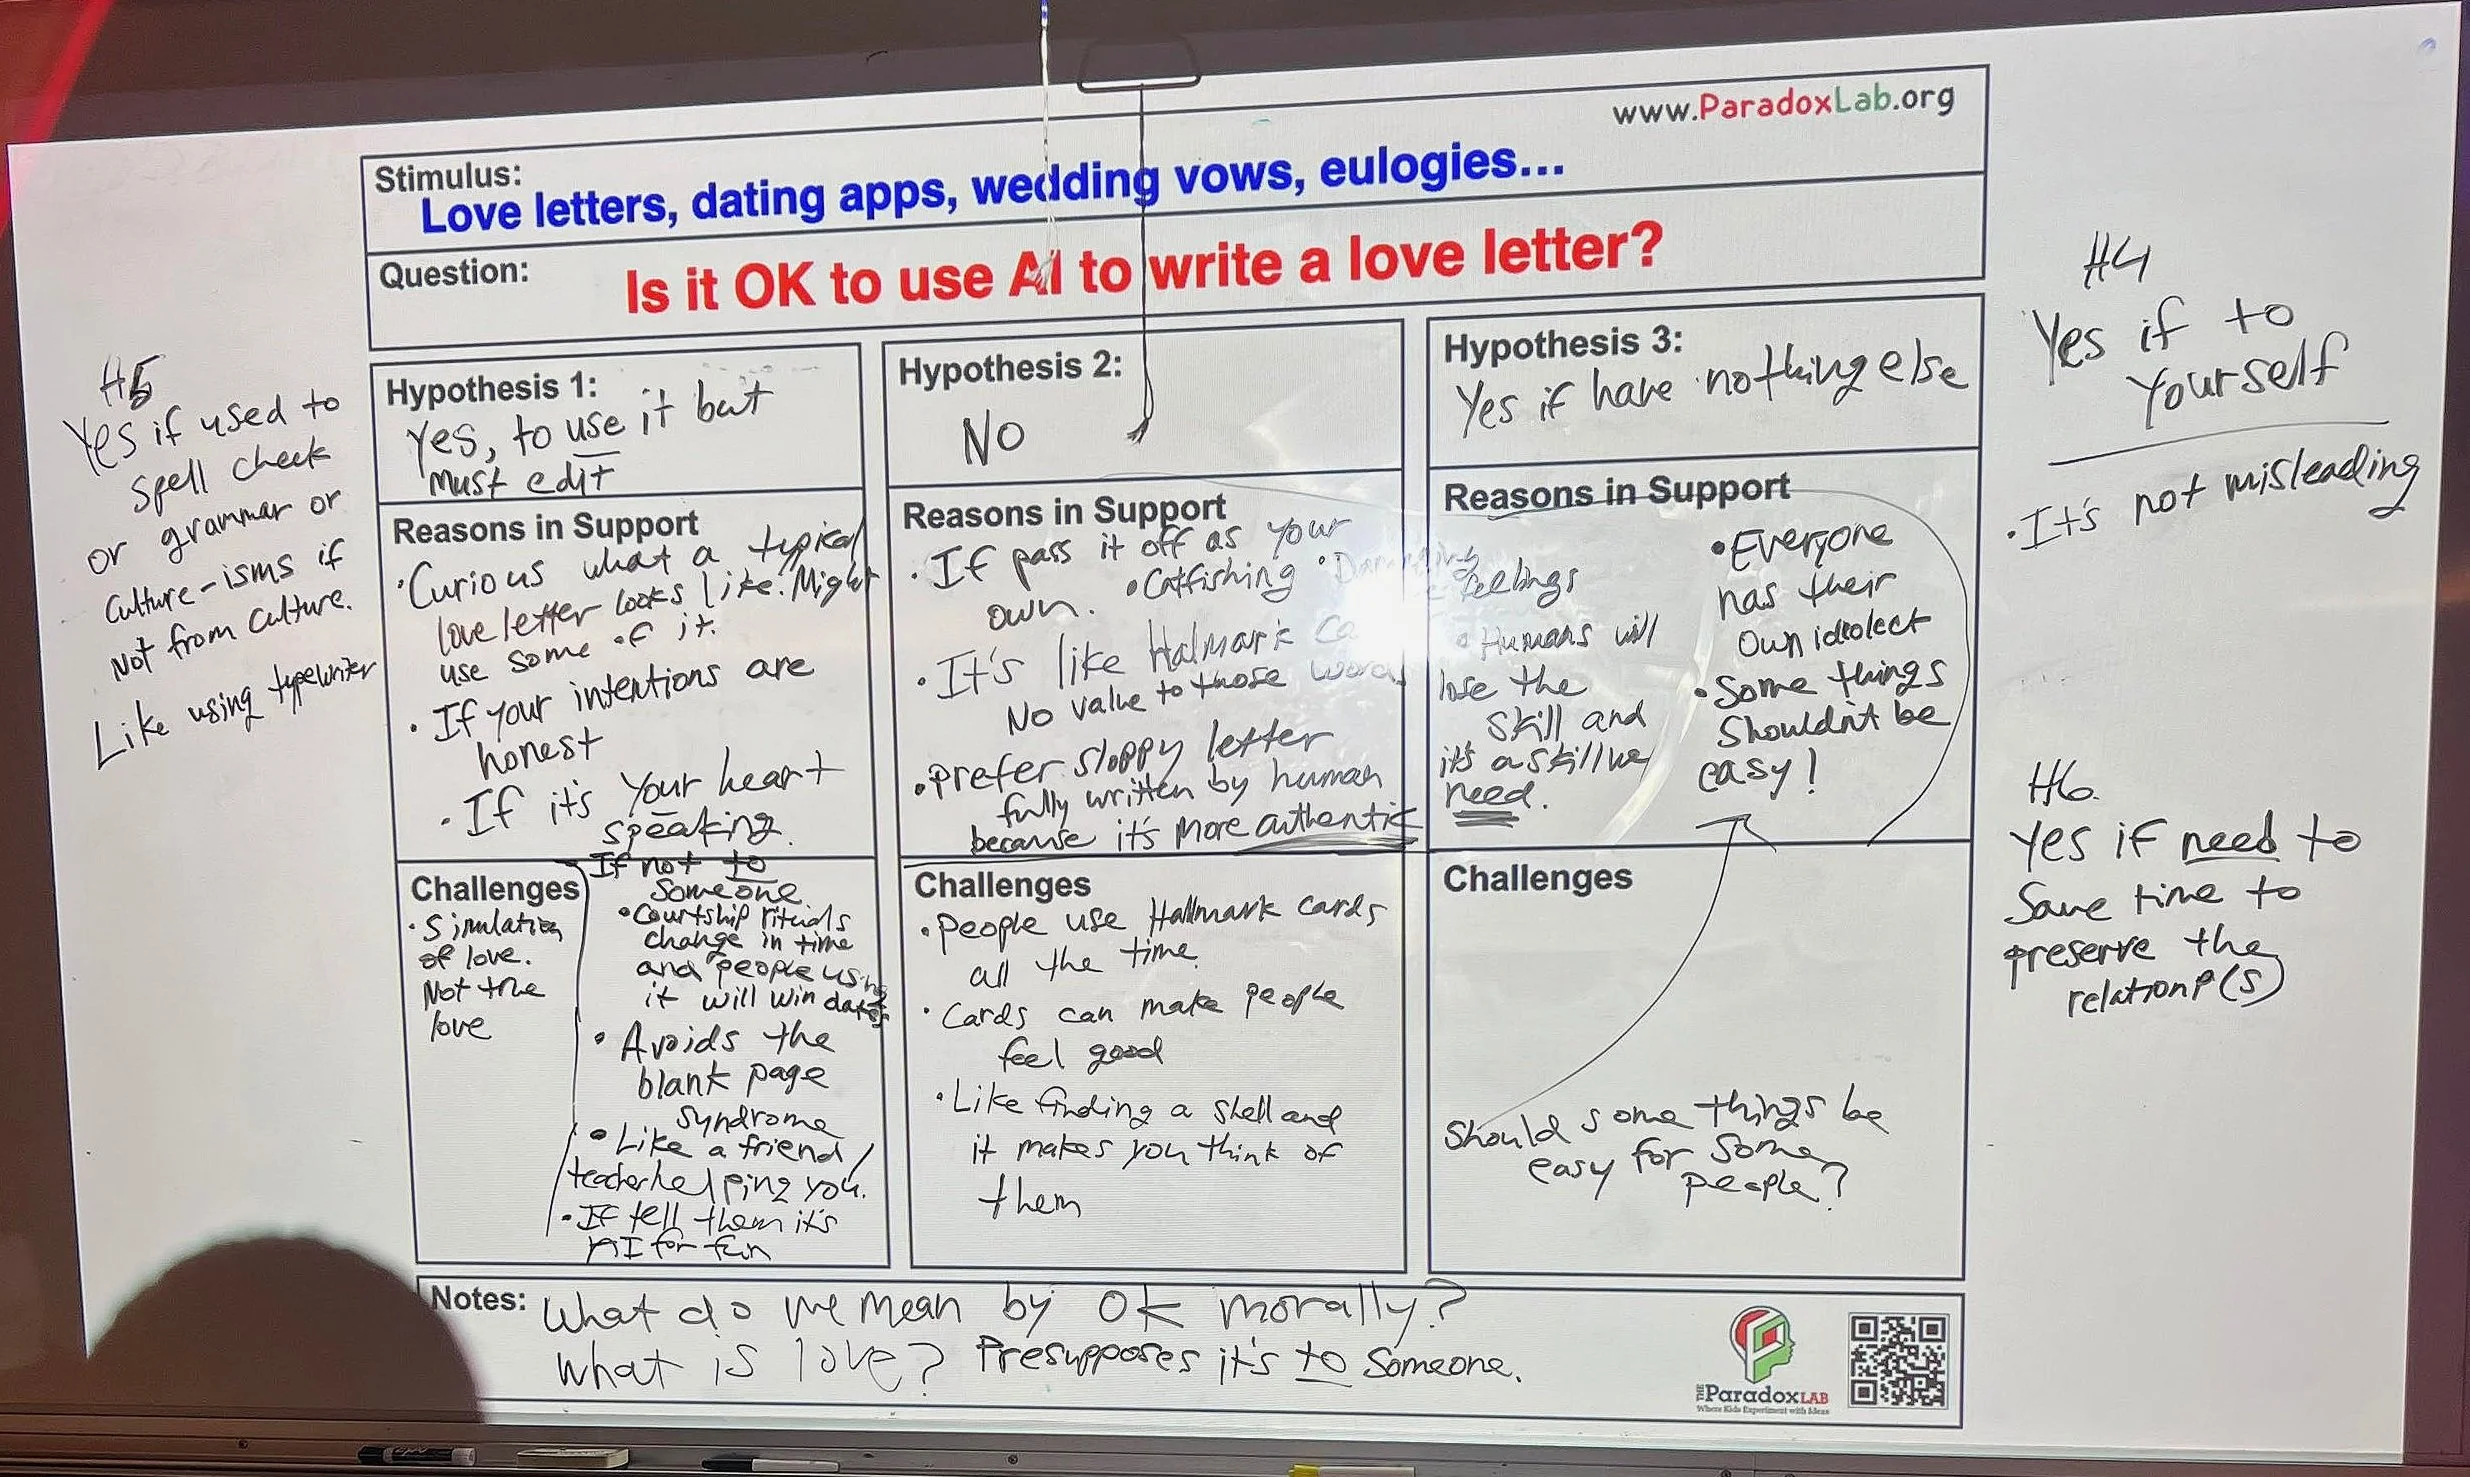 www.ParadoxLab.org
Stimulus:
Love letters, dating apps, wedding vows, eulogies...
Question:
Is it OK to use AI to write a love letter?
H5
Yes if used to
spell check
or grammar or
culture-isms if
not from culture.
Like using typewriter
Hypothesis 1:
Yes, to use it but
must edit
Reasons in Support
• Curious what a typical
love letter looks like. Might
use some of it.
• If your intentions are
honest
• If it's your heart
speaking.
Challenges
• Simulation
of love.
Not true
love
If not to
someone.
• Courtship rituals
change in time
and people using
it will win dates
• Avoids the
blank page
syndrome
• Like a friend/
teacher helping you.
• If tell them it's
AI for fun
Hypothesis 2:
NO
Reasons in Support
• If pass it off as your
own. • Catfishing • Damaging
feelings
• It's like Halmark
No value to those words
• prefer sloppy letter
fully written by human
because it's more authentic
• Humans will
lose the
skill and
it's a skill we
need.
Challenges
• People use Hallmark cards
all the time.
• Cards can make people
feel good
• Like finding a shell and
it makes you think of
them
Hypothesis 3:
Yes if have nothing else
Reasons in Support
• Everyone
has their
own ideolect
• Some things
shouldn't be
easy!
Challenges
Should some things be
easy for some
people?
H4
Yes if to
yourself
• It's not misleading
H6.
Yes if need to
save time to
preserve the
relationp(s)
Notes: What do we mean by OK morally?
What is love? Presupposes it's to someone.
THE ParadoxLAB
Where Kids Experiment with Ideas